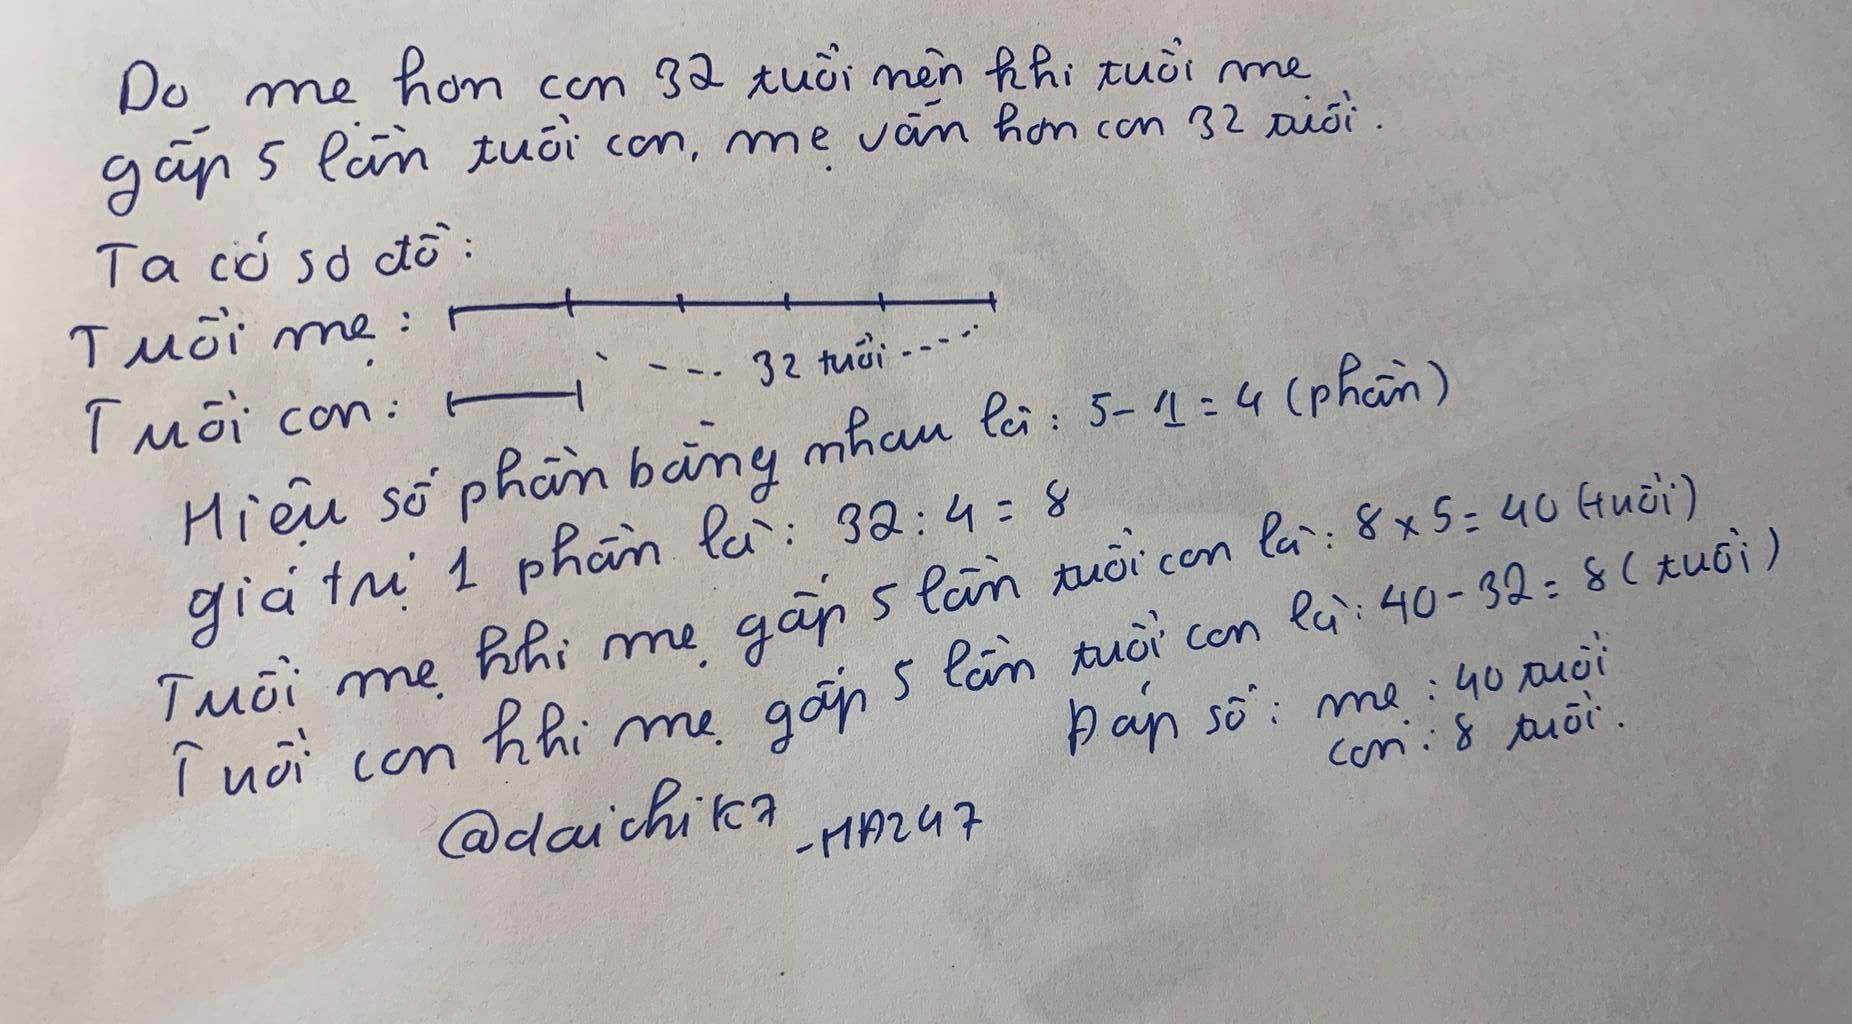 Do mẹ hơn con 32 tuổi nên khi tuổi mẹ
gấp 5 lần tuổi con, mẹ vẫn hơn con 32 tuổi.
Ta có sơ đồ:
Tuổi mẹ:
--- 32 tuổi ----
Tuổi con:
Hiệu số phần bằng nhau là: 5-1=4 (phần)
giá trị 1 phần là: 32:4=8
Tuổi mẹ khi mẹ gấp 5 lần tuổi con là: 8x5=40 (tuổi)
Tuổi con khi mẹ gấp 5 lần tuổi con là: 40-32=8 (tuổi)
Đáp số: mẹ: 40 tuổi
con: 8 tuổi.
@daichik7 -HA247